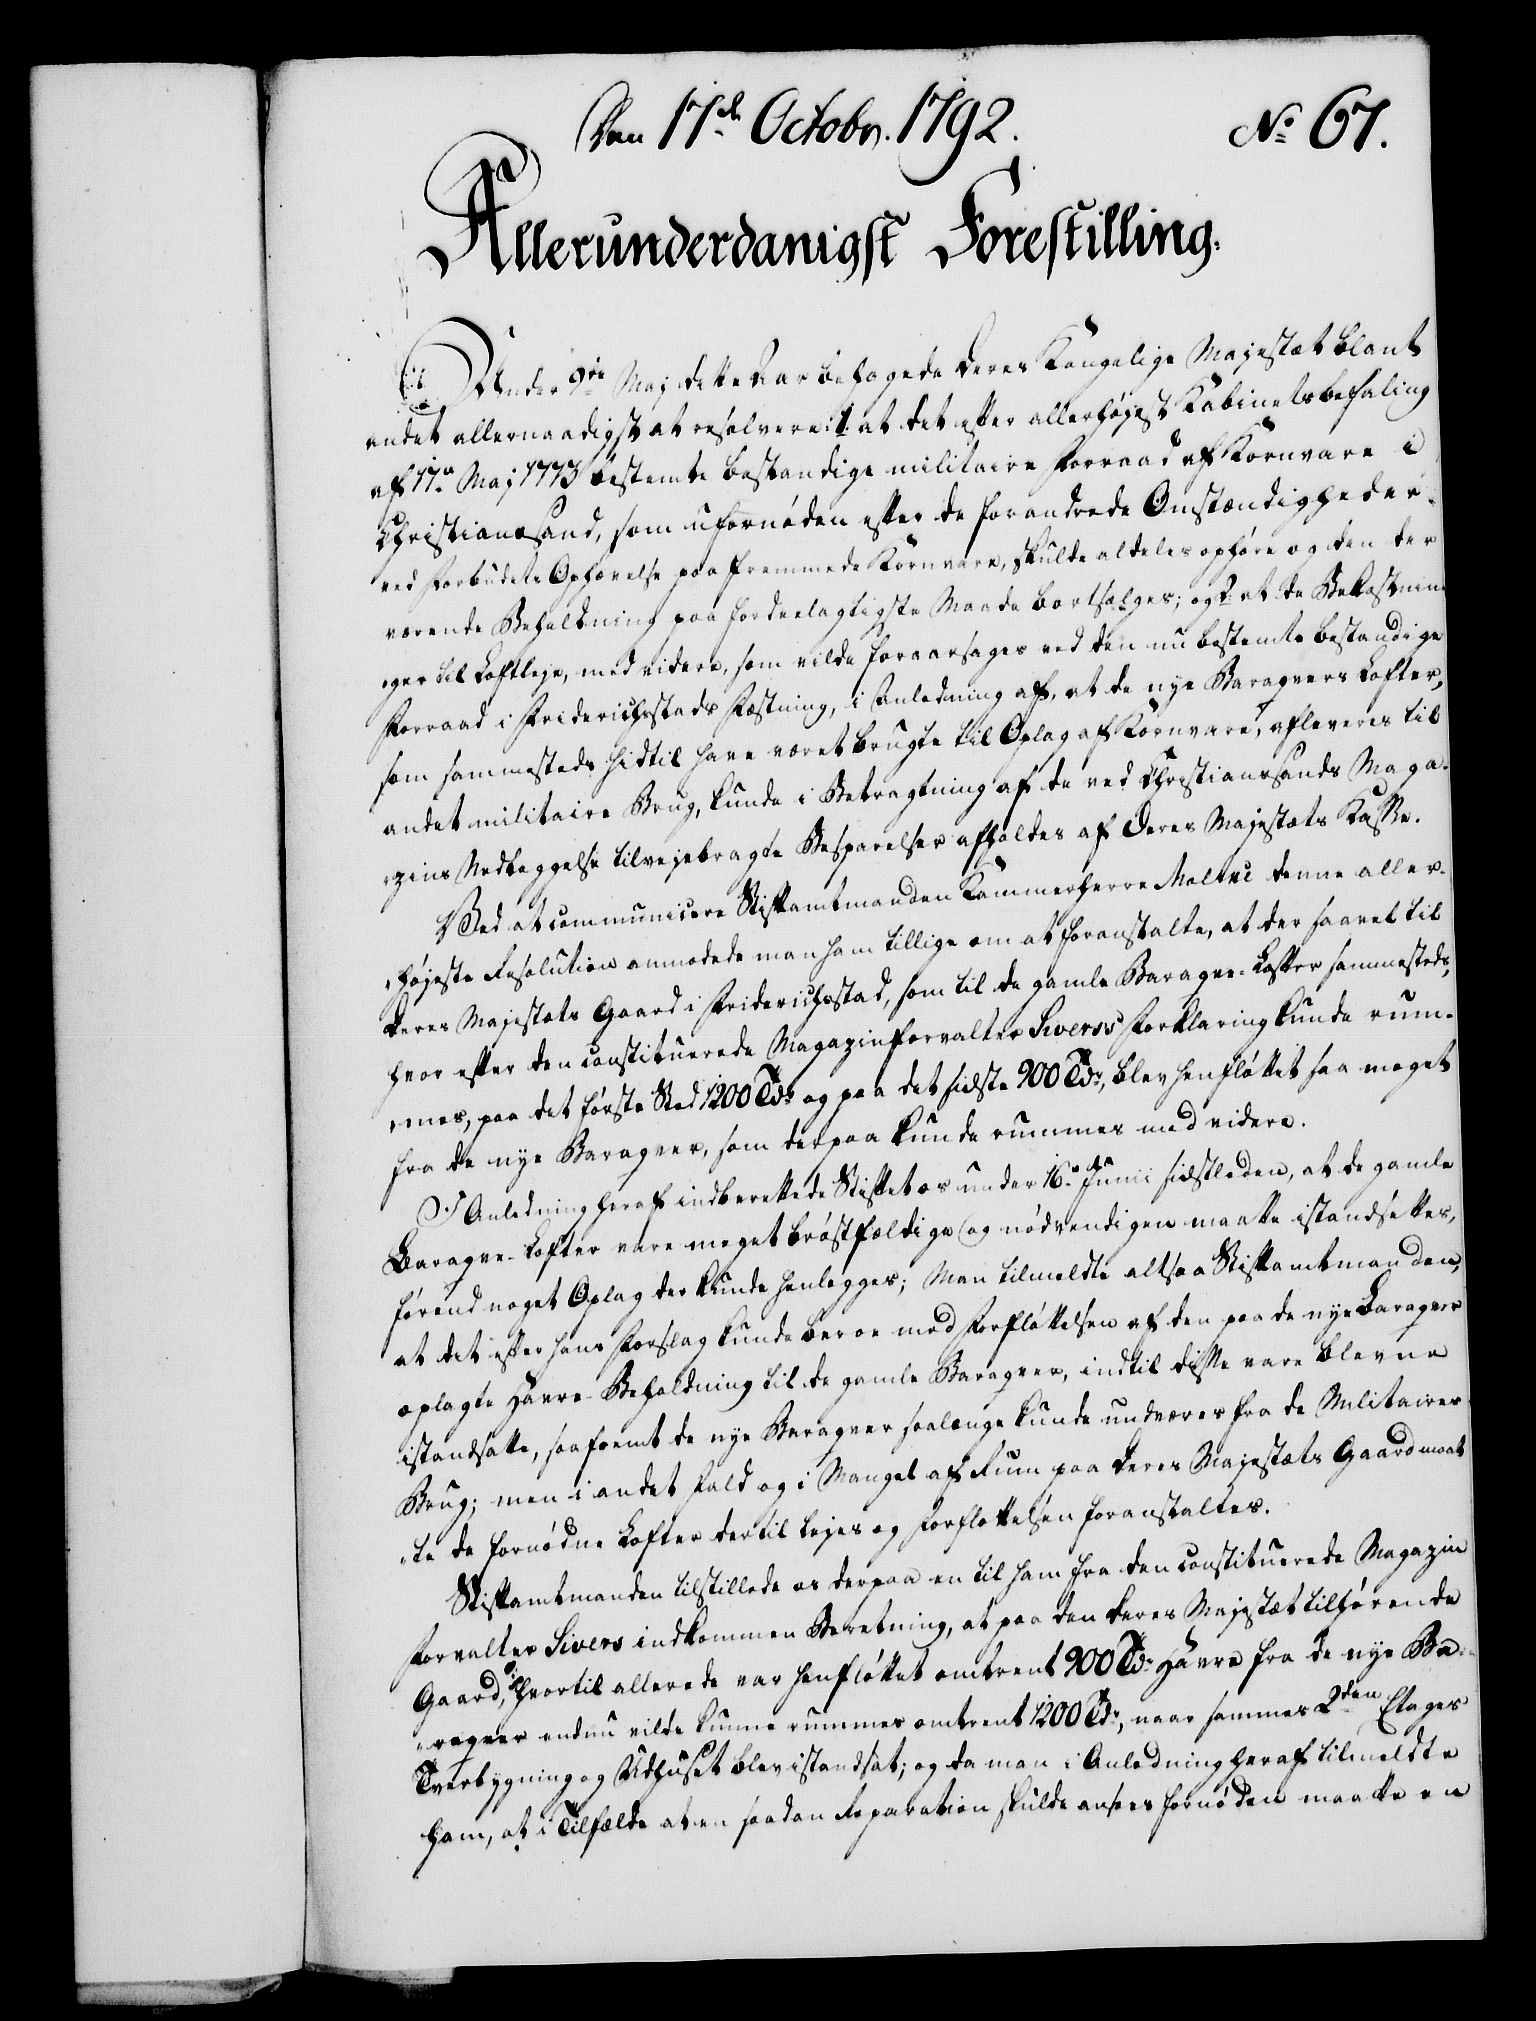 Den 17de Octobr. 1792.
No 67.
Allerunderdanigst Forestilling.
Under 9de Maj dette Aar behagede Deres Kongelige Majestæt blant
andet allernaadigst at resolvere: 1 at det efter allerhøjest Kabinetsbefaling
af 17de Maj 1773 bestemte bestandige militaire Forraad af Kornvare i
Christiansand, som ufornøden efter de forandrede Omstændigheder
ved Forbudets Ophævelse paa fremmede Kornvare, skulde aldeles ophøre og den der
værende Beholdning paa fordeelagtigste Maade bortsælges; og 2 at de Bekostnin
ger til Loftleje, med videre, som vilde foraarsages ved den nu bestemte bestandige
Forraad i Friderichsstads Fæstning, i Anledning af, at de nye Baraqvers Lofter,
som sammesteds hidtil have været brugte til Oplag af Kornvare, afleveres til
andet militaire Brug, kunde i Betragtning af de ved Christianssands Maga-
zins Nedleggelse tilvejebragte Besparelser afholdes af Deres Majestæts Kasse.
Ved at communicere Stiftamtmanden Kammerherre Moltke denne aller-
højeste Resolution anmodede man ham tillige om at foranstalte, at der saavel til
Deres Majestæts Gaard i Friderichsstad, som til de gamle Baraqve-Lofter sammesteds,
hvor efter den constituerede Magazinforvalter Siverss Forklaring kunde rum-
mes, paa det første Sted 1200 Tdr og paa det sidste 900 Tdr, blev henfløttet saa meget
fra de nye Baraqver, som derpaa kunde rummes med videre.
I Anledning heraf indberettede Stiftet os under 16de Junii sidstleden, at de gamle
Baraqve-Lofter vare meget brøstfældige og nødvendigen maatte istandsættes,
førend noget Oplag der kunde henlegges; Man tilmeldte altsaa Stiftamtmanden,
at det efter hans Forslag kunde beroe med Forfløttelsen af den paa de nye Baraqver
oplagte Havre-Beholdning til de gamle Baraqver, indtil disse vare blevne
istandsatte, saafremt de nye Baraqver saalænge kunde undværes fra de Militaires
Brug; men i andet Fald og i Mangel af Rum paa Deres Majestæts Gaard maat
te de fornødne Lofter dertil lejes og Forfløttelsen foranstaltes.
Stiftamtmanden tilstillede os derpaa en til ham fra den constituerede Magazin
Forvalter Sivers indkommen Beretning, at paa den Deres Majestæt tilhørende
Gaard, hvortil allerede var henfløttet omtrent 900 Tdr Havre fra de nye Ba-
raqver endnu vilde kunne rummes omtrent 1200 Tdr, naar sammes 2den Etages
Tverbygning og Udhuset blev istandsat; og da man i Anledning heraf tilmeldte
ham, at i Tilfælde at en saadan Reparation skulde ansees fornøden maatte en